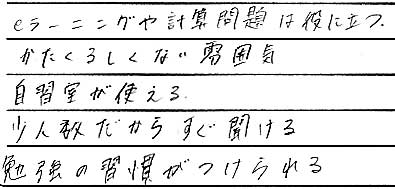 eラーニングや計算問題は役に立つ.
かたくるしくない雰囲気
自習室が使える.
少人数だからすぐ聞ける
勉強の習慣がつけられる